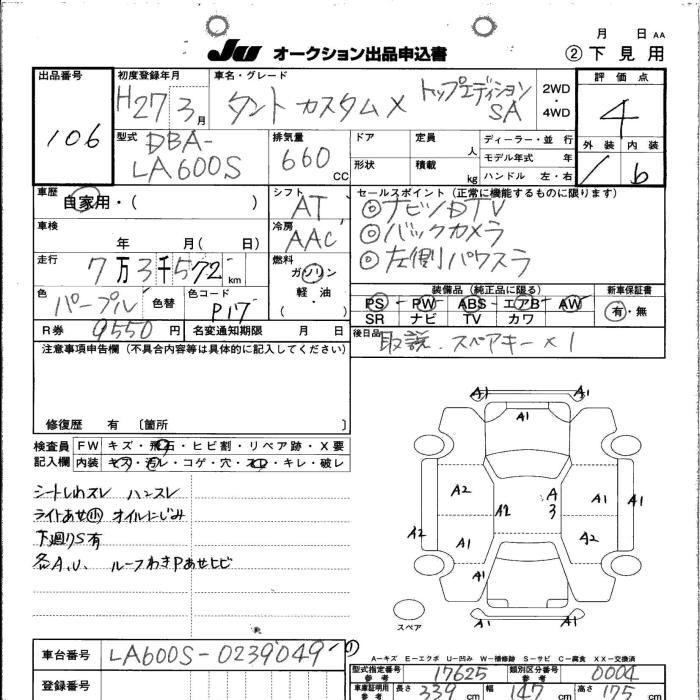 月 日 AA
JU オークション出品申込書 ②下見用
出品番号 初度登録年月 車名・グレード 評価点
106 H27 3月 タント カスタムX トップエディション SA 2WD・4WD 4
型式 DBA-LA600S 排気量 660 CC ドア 定員 人 ディーラー・並行 外装 内装
形状 積載 kg モデル年式 年 ハンドル 左・右
車歴 自家用・( ) シフト AT セールスポイント(正常に機能するものに限ります)
車検 年 月( 日) 冷房 AAC ◎ナビソDTV
◎バックカメラ
◎左側パワスラ
走行 7万3千572km 燃料 ガソリン 軽・油 ( )
色 パープル 色替 色コード P17 装備品(純正品に限る) 新車保証書
PS PW ABS エアB AW 有・無
SR ナビ TV カワ
R券 9550円 名変通知期限 月 日 後日品 取説.スペアキー×1
注意事項申告欄(不具合内容等は具体的に記入してください)
修復歴 有 〔箇所 〕
検査員 FW キズ・飛石・ヒビ割・リペア跡・X要
記入欄 内装 キズ・汚レ・コゲ・穴・スレ・キレ・破レ
シートしわスレ ハンスレ
ライトあせ小 オイルにじみ
下廻りS有
各A.U. ルーフわきPあせヒビ
A1 A1
A1
A2 A1 A1
A2 A 3
A2 A1 A2
A1
A1 A1
スペア
車台番号 LA600S-0239049
登録番号
A-キズ E-エクボ U-凹み W-補修跡 S-サビ C-腐食 XX-交換済
型式指定番号 参考 17625 類別区分番号 参考 0004
車庫証明用 参考 長さ 339 cm 幅 147 cm 高さ 175 cm